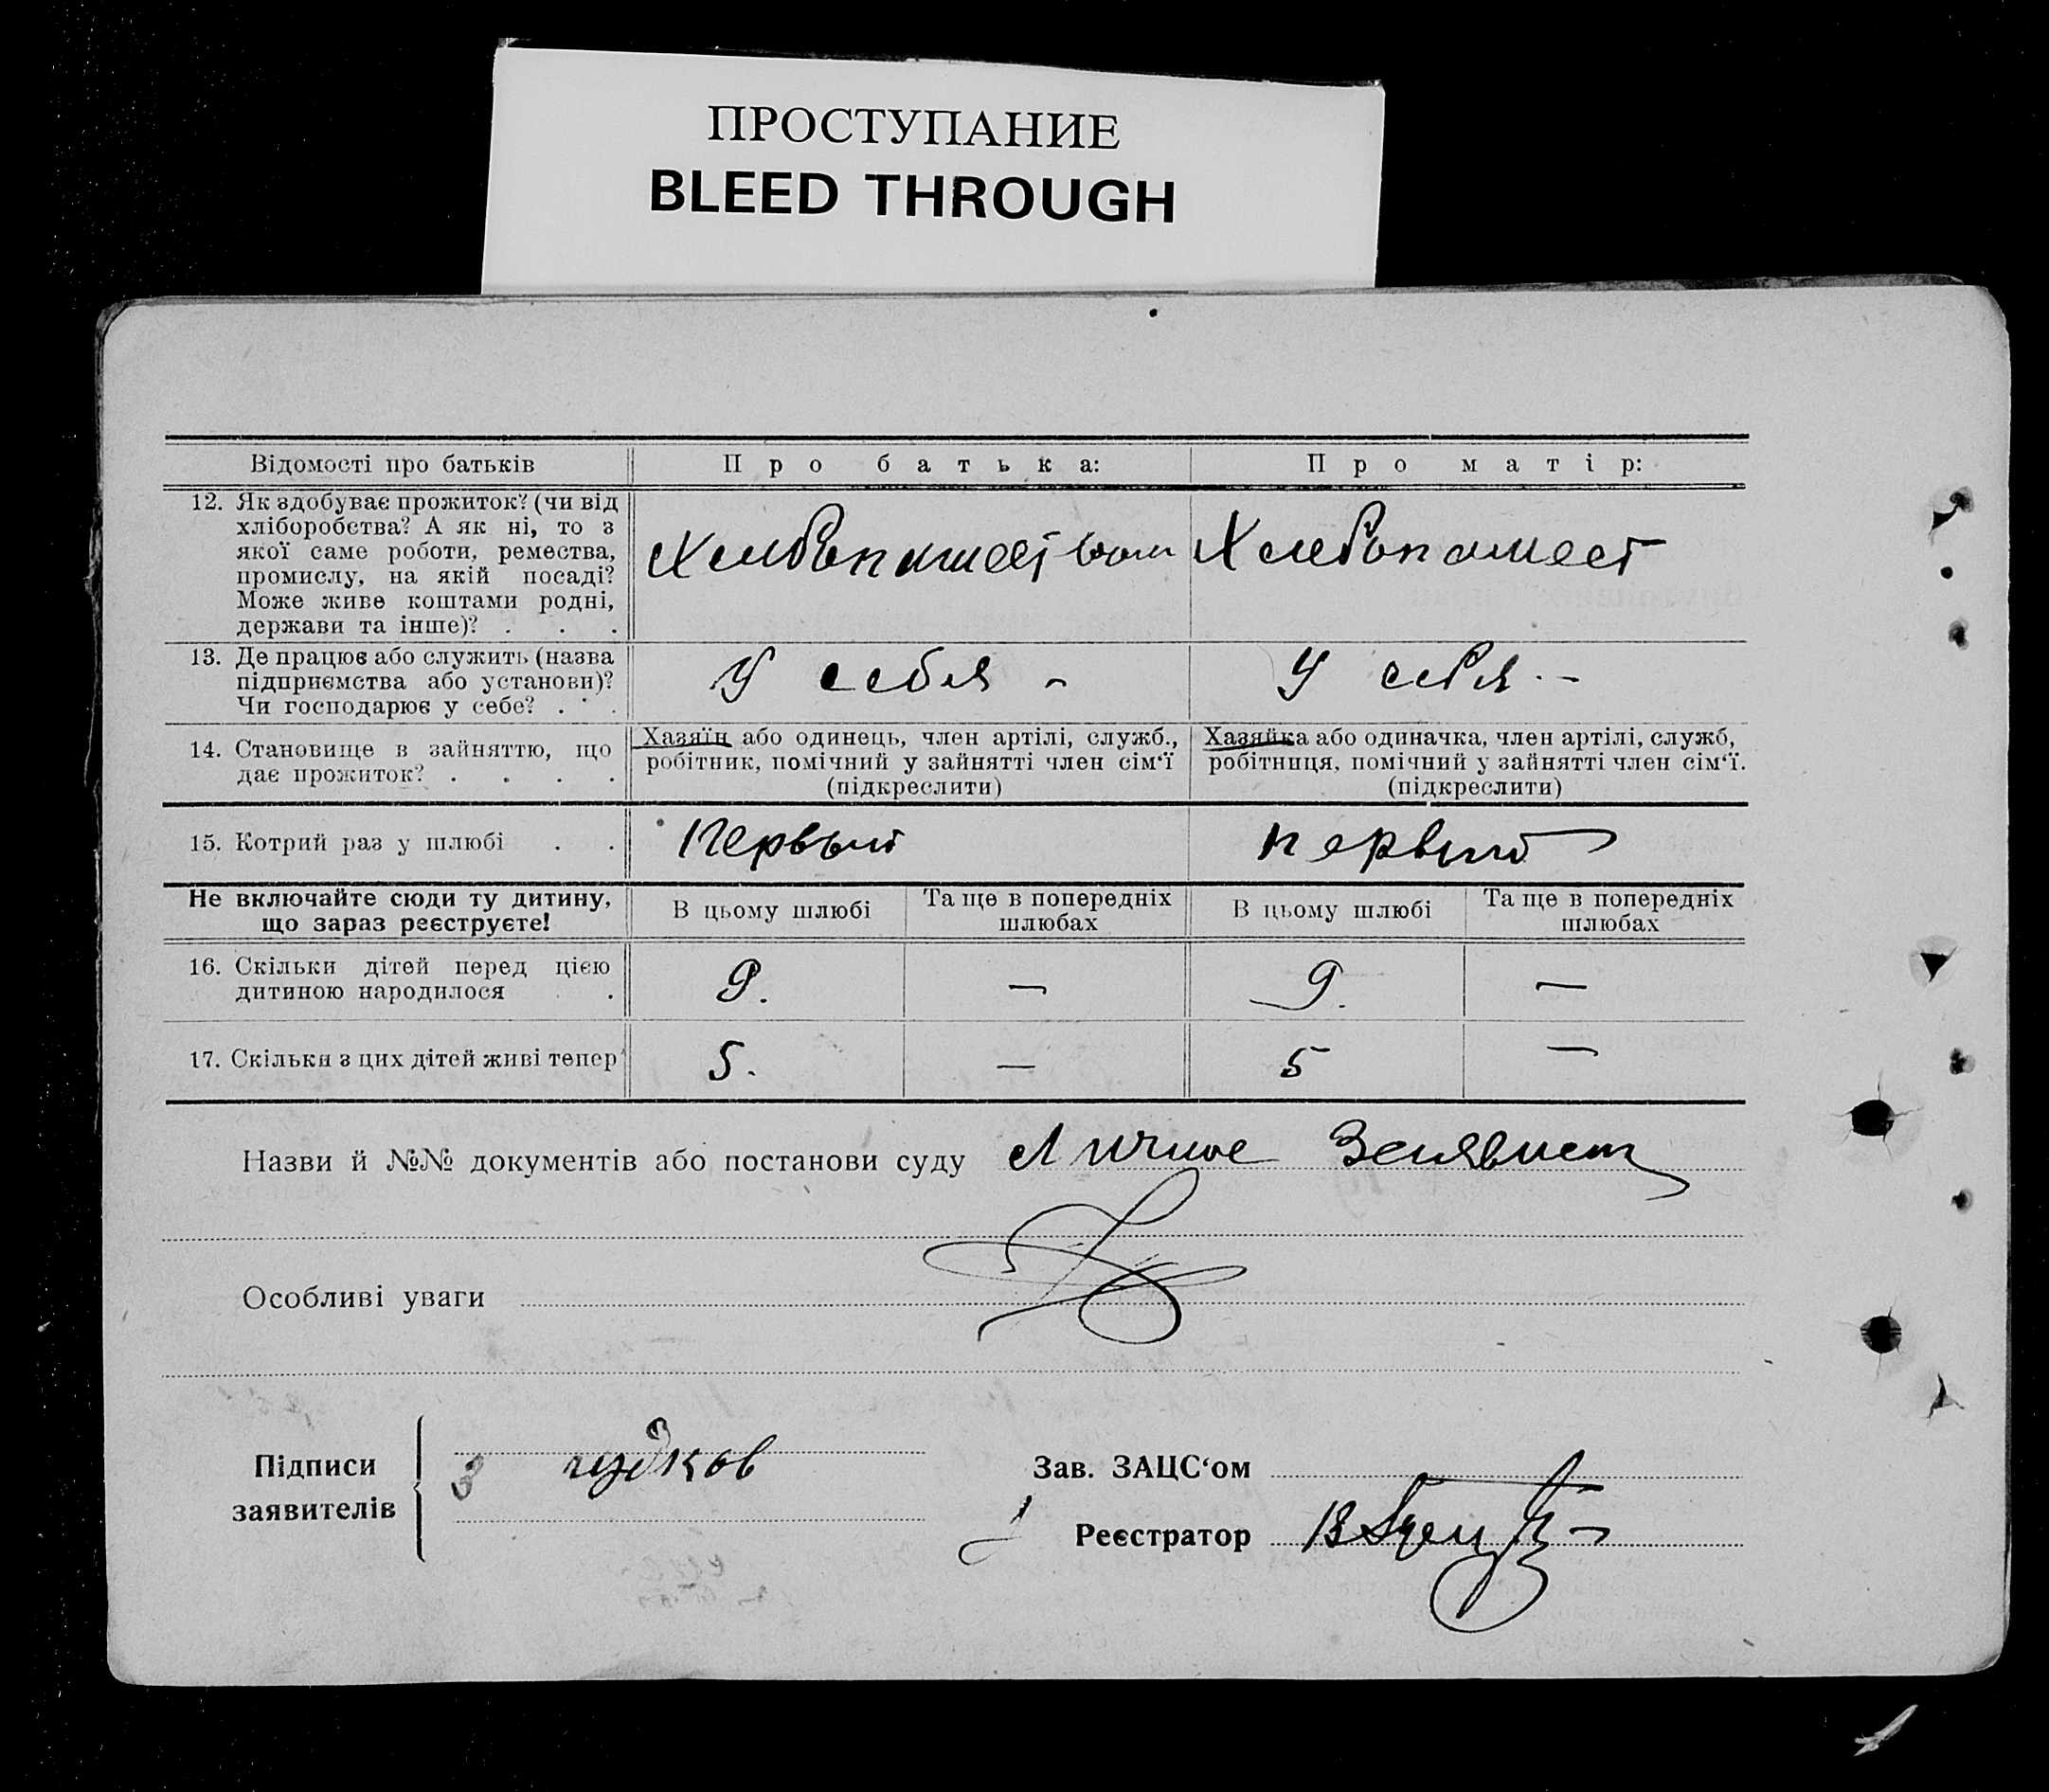 ПРОСТУПАНИЕ
BLEED THROUGH
Відомості про батьків Про батька: Про матір:
12. Як здобуває прожиток? (чи від
хліборобства? А як ні, то з
якої саме роботи, ремества,
промислу, на якій посаді?
Може живе коштами родні,
держави та інше)? . . .
Хлебопашеством Хлебопашест
13. Де працює або служить (назва
підприємства або установи)?
Чи господарює у себе? . . .
У себя - У себя -
14. Становище в зайняттю, що
дає прожиток? . . . .
Хазяїн або одинець, член артілі, служб.,
робітник, помічний у зайнятті член сім‘ї
(підкреслити)
Хазяйка або одиначка, член артілі, служб,
робітниця, помічний у зайнятті член сім‘ї.
(підкреслити)
15. Котрий раз у шлюбі . . Первый первый
Не включайте сюди ту дитину,
що зараз реєструєте!
В цьому шлюбі Та ще в попередніх
шлюбах
В цьому шлюбі Та ще в попередніх
шлюбах
16. Скільки дітей перед цією
дитиною народилося .
9. — 9. —
17. Скільки з цих дітей живі тепер 5. — 5 —
Назви й №№ документів або постанови суду Личное
Особливі уваги
Підписи
заявителів
Зав. ЗАЦС‘ом
Реєстратор